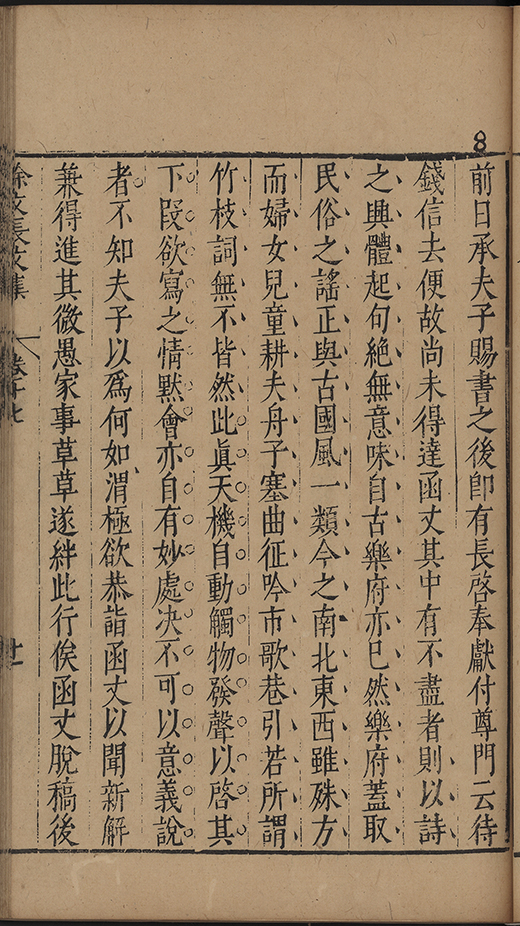 8
前日承夫子賜書之後卽有長啓奉獻付尊門云待
錢信去便故尚未得達函丈其中有不盡者則以詩
之興體起句絕無意味自古樂府亦已然樂府蓋取
民俗之謠正與古國風一類今之南北東西雖殊方
而婦女兒童耕夫舟子塞曲征吟市歌巷引若所謂
竹枝詞無不皆然此眞天機自動觸物發聲以啓其
下叚欲寫之情默會亦自有妙處决不可以意義說
者不知夫子以爲何如渭極欲恭詣函丈以聞新解
兼得進其微愚家事草草遂絆此行俟函丈脫稿後
徐文長文集 卷十七 廿一